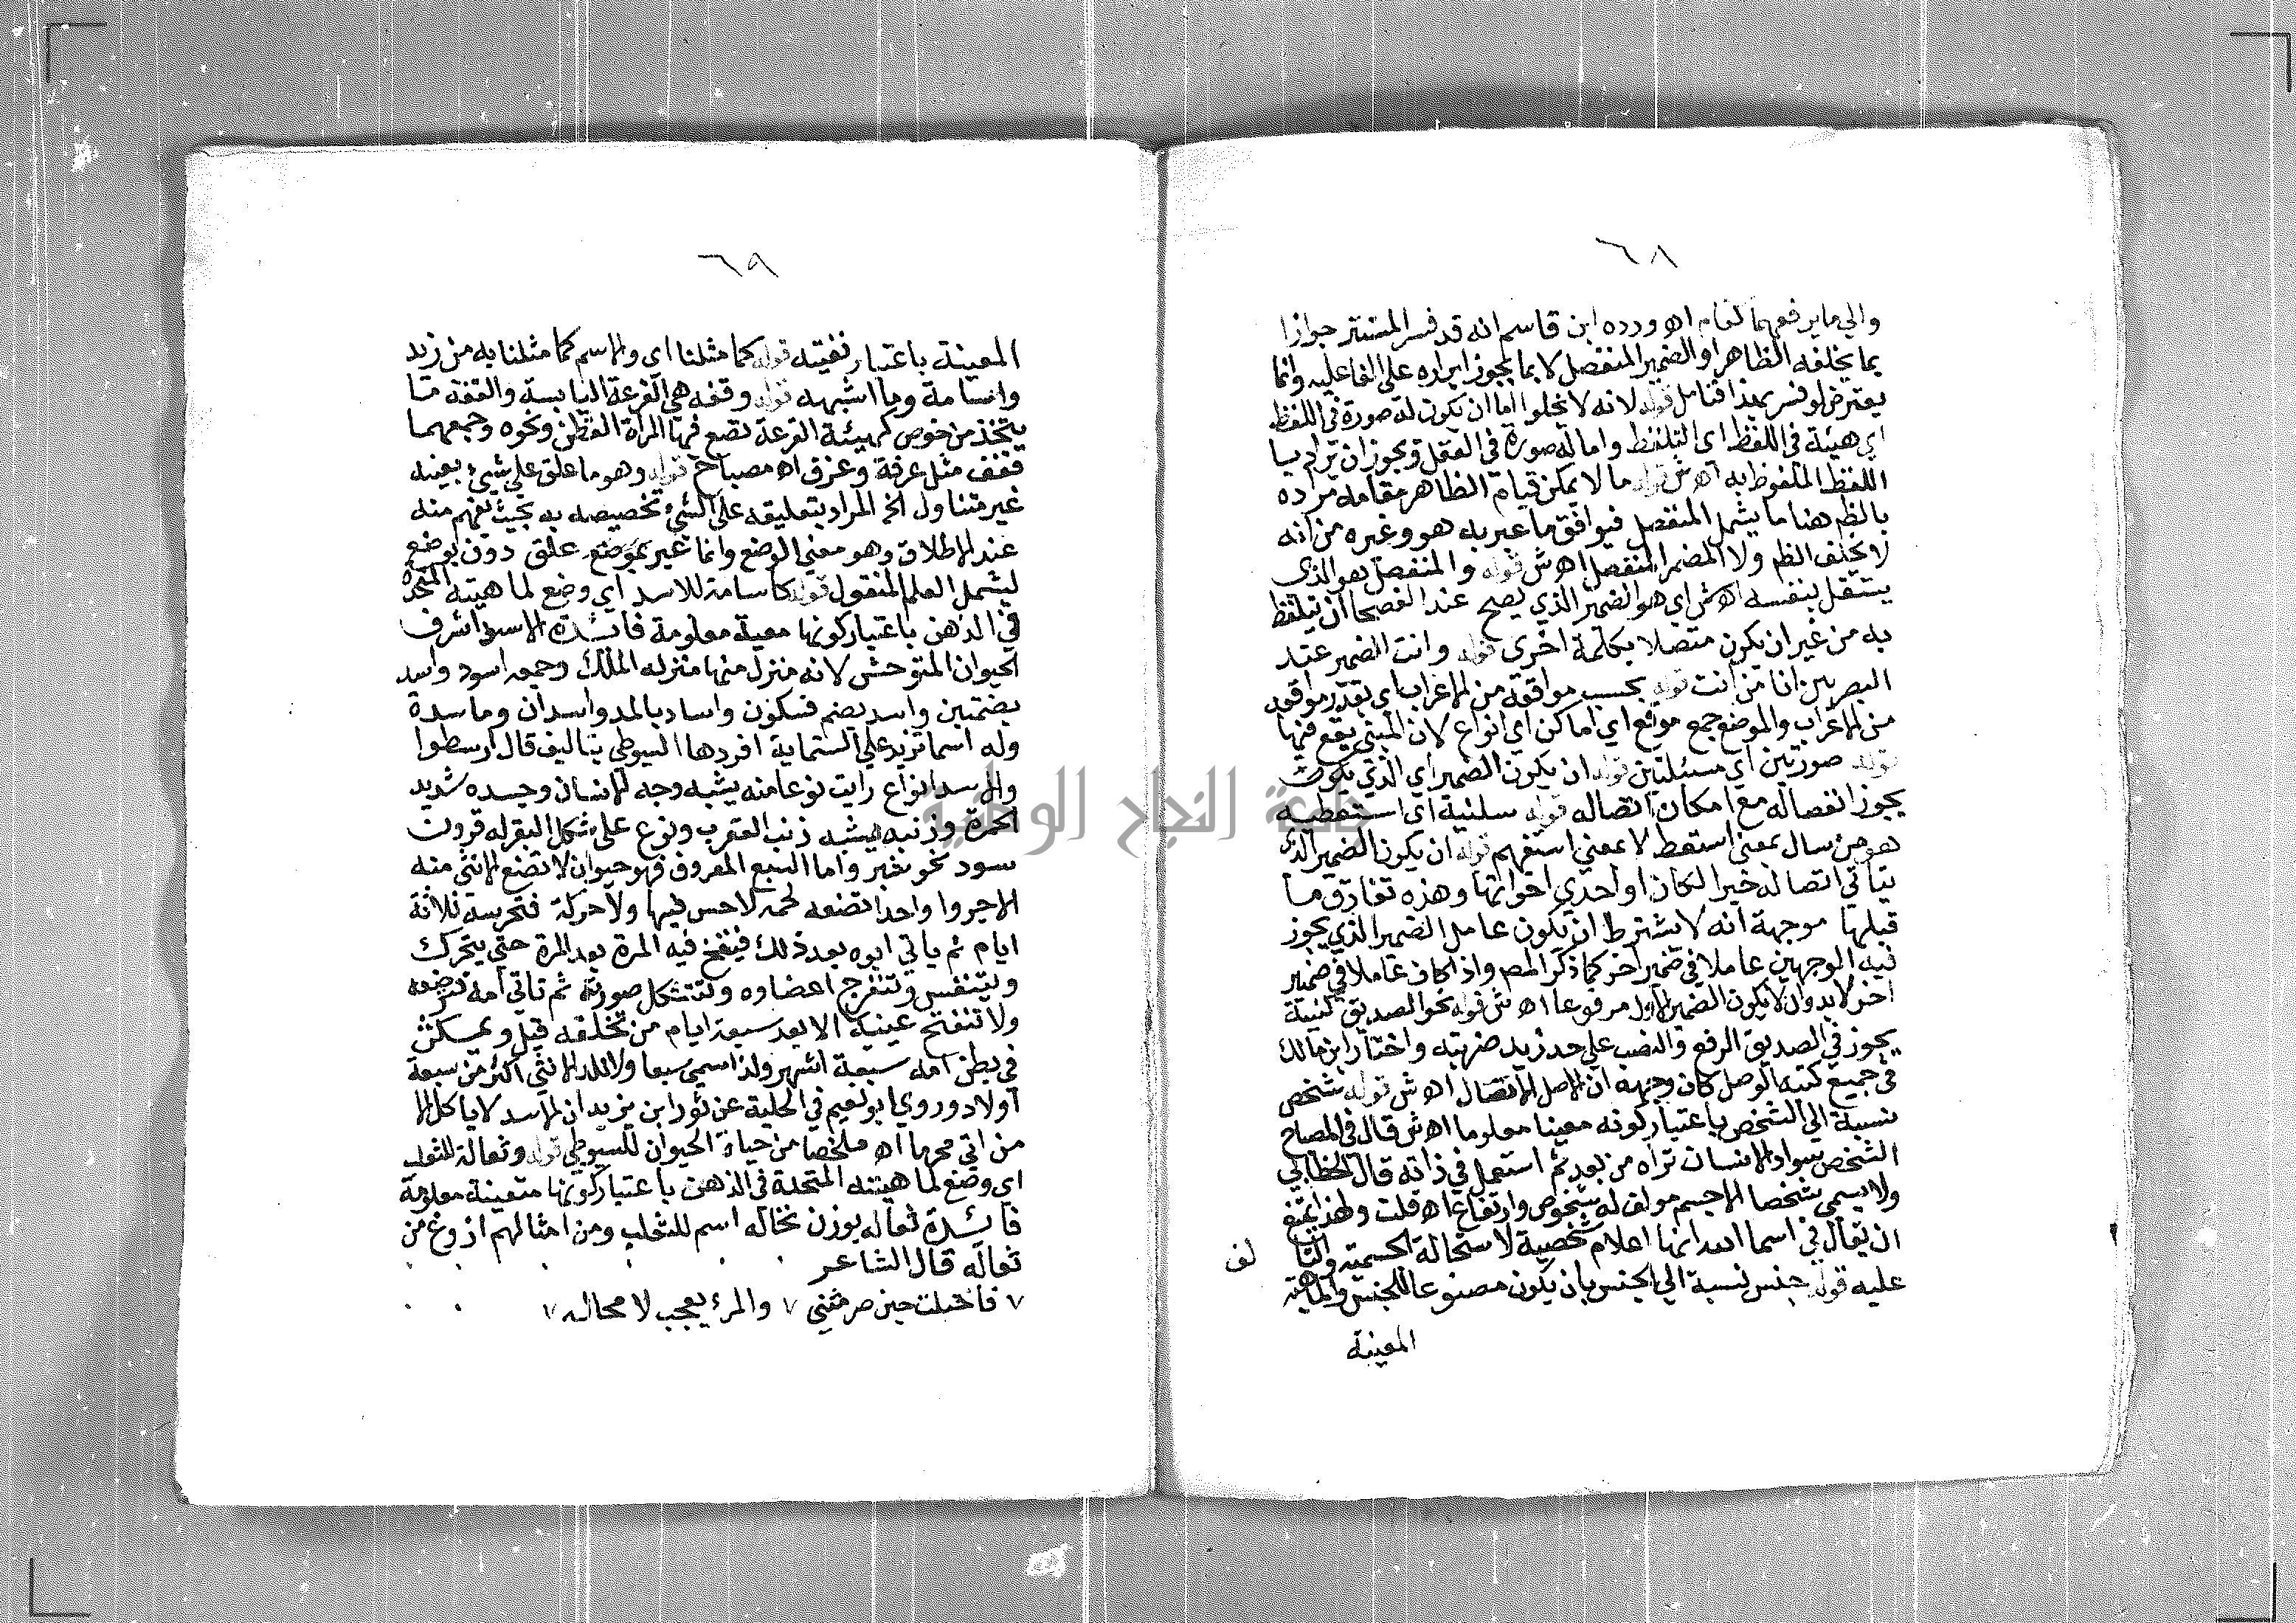 ٦٨
والي ما يرفعهما كقام اه ورده ابن قاسم انه قد فسر المستتر جوازا
بما يخلفه الظاهر او الضمير المنفصل لا بما يجوز ابرازه على الفاعليه وانما
يعترض لو فسر بهذا فتامل قوله لانه لا يخلوا اما ان يكون له صورة في اللفظ
اي هيئة في اللفظ اى التلفظ واما له صورة في العقل ويجوز ان يراد بـ
اللفظ الملفوظ به اه ش قوله ما لا يمكن قيام الظاهر مقامه مراده
بالظم هنا ما يشمل المنفصل فيوافق ما عبر به هو وغيره من انه
لا يخلف الظم ولا المضمر المنفصل اه ش قوله والمنفصل هو الذى
يستقل بنفسه اه ش اي هو الضمير الذي يصح عند الفصحا ان يتلفظ
به من غير ان يكون متصلا بكلمة اخرى قوله وانت الضمير عند
البصريين انا من انت قوله بحسب مواقعه من الاعراب اي بقدر مواقعه
من الاعراب والموضع جمع موقع اي اماكن اي انواع لان المبنى يقع فيها
قوله صورتين اي مسئلتين قوله ان يكون الضمير اي الذي يكون
يجوز انفصاله مع امكان اتصاله قوله سلنيه اى استعطيه
هو من سال بمعنى استعط لا بمعنى استفهم قوله ان يكون الضمير الذي
يتاتي اتصاله خبرا لكان او احدي اخواتها وهذه تفارق ما
قبلها موجهة انه لا يشترط ان يكون عامل الضمير الذي يجوز
فيه الوجهين عاملا في ضمير اخر كما ذكر المصم واذا كان عاملا في ضمير
اخر لا بد وان لا يكون الضمير الاول مرفوعا اه ش قوله نحو الصديق كنته
يجوز في الصديق الرفع والنصب على حد زيد ضربته واختار ابن مالك
في جميع كتبه الوصل كان وجهه ان الاصل الاتصال اه ش قوله شخص
نسبة الى الشخص باعتبار كونه معينا معلوما اه ش قال في المصباح
الشخص سواد الانسان تراه من بعد ثم استعمل في ذاته قال الخطابي
ولا يسمى شخصا الا جسم مولف له شخوص وارتفاع اه قلت ولهذا يمتنع
ان يقال في اسما الله انها اعلام شخصية لاستحالة الجسمية والتا
لف
عليه قوله جنس نسبة الي الجنس بان يكون مصنوعا للجنس والماهية
المعينة
٦٩
المعينة باعتبار نفيته قوله كما مثلنا اى والاسم كما مثلنا به من زيد
واسامة وما اشبهه قوله وقفه هي القرعة اليابسة والقفة ما
يتخذ من خوص كهيئة القرعة تضع فيها المراة القطن ونحوه وجمعهما
قفف مثل غرفة وغرف اه مصباح قوله وهو ما علق علي شئ بعينه
غير متناول الخ المراد بتعليقه على الشئ تخصيصه به بحيث يفهم منه
عند الاطلاق وهو معنى الوضع وانما عبر علق دون بوضع
ليشمل العلم المنقول قوله كاسامة للاسد اي وضع لما هيته المتحدة
في الذهن باعتبار كونها معينة معلومة فائدة الاسد اشرف
الحيوان المتوحش لانه منزل منها منزله الملك وجمعه اسود واسد
بضمتين واسد بضم فسكون واساد بالمد واسدان وماسدة
وله اسما تزيد علي الستماية افردها السيوطي بتاليف قال ارسطوا
والاسد انواع رايت نوعا منه يشبه وجه الانسان وجسده شديد
الحمرة وذنبه يشبه ذنب العقرب ونوع على شكل البقر له قرون
سود نحو شبر واما السبع المعروف فهو حيوان لا تضع الانثى منه
الا جروا واحدا تضعه لحمه لا حس فيها ولا حركة فتحرسه ثلاثة
ايام ثم ياتي ابوه بعد ذلك فينفخ فيه المرة بعد المرة حتى يتحرك
ويتنفس وتنفرج اعضاوه وتتشكل صورته ثم تاتي امه فترضعه
ولا تنفتح عينيه الا بعد سبعة ايام من تخلفه قيل ويمكث
في بطن امه سبعة اشهر ولذا سمي سبعا ولا تلد الانثى اكثر من سبعة
اولاد وروي ابو نعيم في الحلية عن ثور ابن يزيد ان الاسد لا ياكل الا
من اتى محرما اه ملخصا من حياة الحيوان للسيوطي قوله وثعالة للثعلب
اي وضع لما هيتنه المتحدة في الذهن باعتبار كونها متعينة معلومة
فائدة ثعاله بوزن نخاله اسم للثعلب ومن امثالهم اروغ من
ثعاله قال الشاعر
٧ فاختلت حين صرمتني ٧ والمرء يعجب لا محاله ٧
جامعة النجاح الوطنية